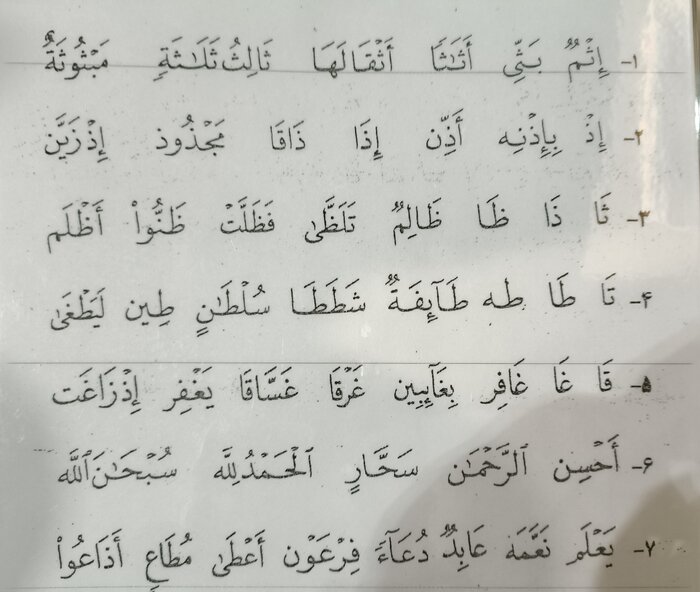 ۱- إِثْمٌ بَثِّى أَثَٰثًا أَثْقَالَهَا ثَالِثُ ثَلَٰثَةٍ مَبْثُوثَةٌ
۲- إِذْ بِإِذْنِه أَذِّن إِذَا ذَاقَا مَجْذُوذ إِذْزَيَّن
۳- ثَا ذَا ظَا ظَالِمٌ تَلَظَّىٰ فَظَلَّتْ ظَنُّواْ أَظْلَم
۴- تَا طَا طه طَآئِفَةٌ شَطَطَا سُلْطَٰنٍ طِين لَيَطْغَىٰ
۵- قَا غَا غَافِر بِغَآئِبِين غَرْقَا غَسَّاقَا يَغْفِر إِذْزَاغَت
۶- أَحْسِن ٱلرَّحْمَٰن سَحَّارٍ ٱلْحَمْدُلِلَّه سُبْحَٰنَٱللَّه
۷- يَعْلَم نَعَّمَه عَابِدٌ دُعَآءَ فِرْعَوْن أَعْطَىٰ مُطَاعٍ أَذَاعُواْ